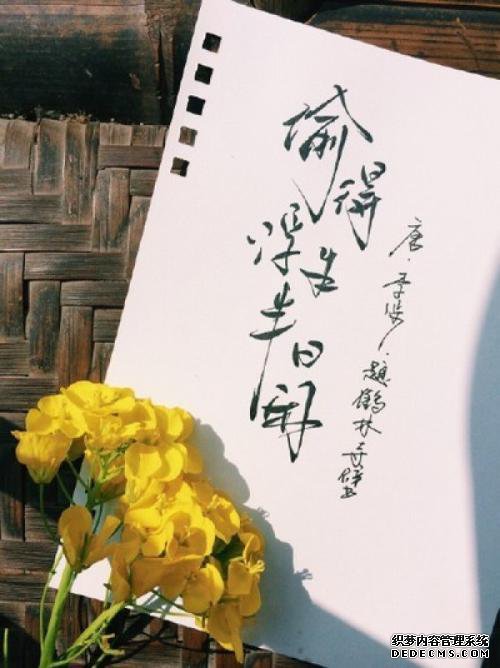 偷得浮生半日闲
唐·李涉·题鹤林寺壁
织梦内容管理系统
DEDECMS.COM